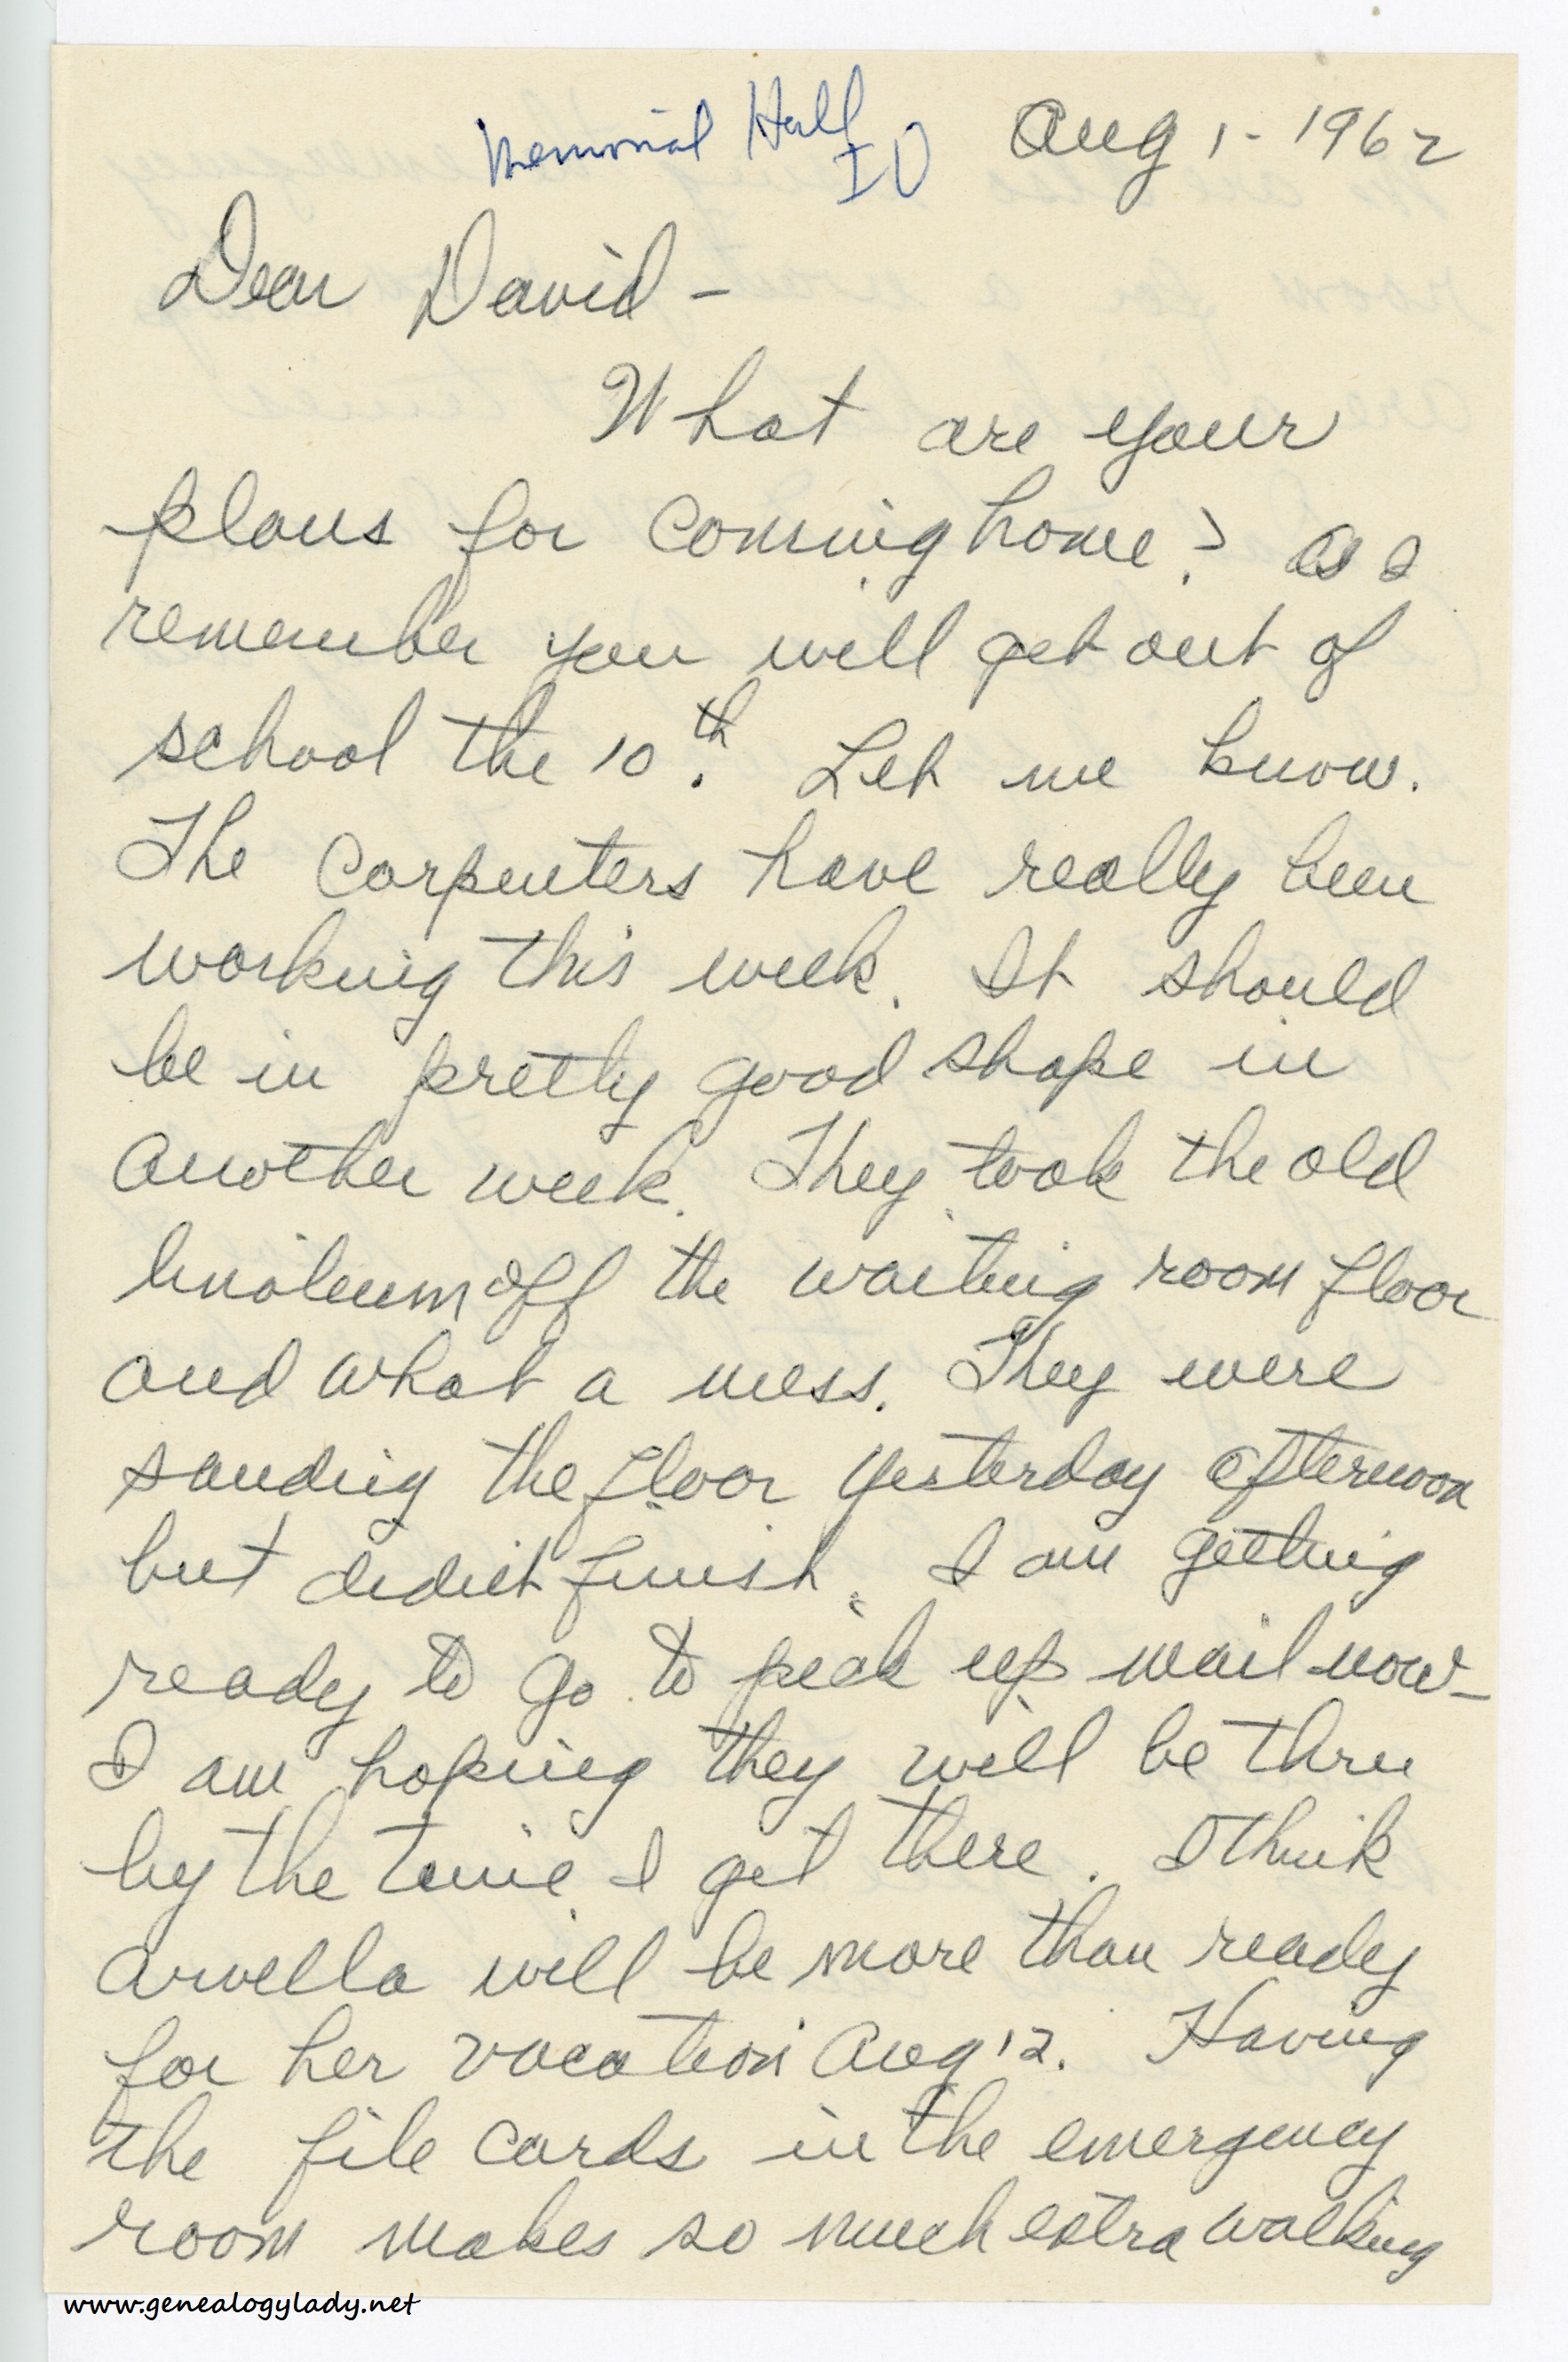 Memorial Hall
IU
Aug 1 - 1962
Dear David -
What are your
plans for coming home? As I
remember you will get out of
school the 10th. Let me know.
The carpenters have really been
working this week. It should
be in pretty good shape in
another week. They took the old
linoleum off the waiting room floor
and what a mess. They were
sanding the floor yesterday afternoon
but didn't finish. I am getting
ready to go to pick up mail now -
I am hoping they will be thru
by the time I get there. I think
Arvella will be more than ready
for her vacation Aug 12. Having
the file cards in the emergency
room makes so much extra walking
www.genealogylady.net